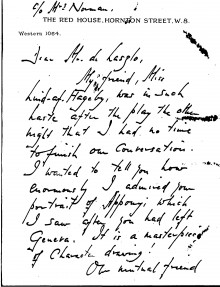 c/o Mrs Norman.
THE RED HOUSE, HORNTON STREET, W.8.
Western 1064.
Dear Mr. de Laszlo,
My friend, Miss
Lind-af-Hageby, was in such
haste after the play the other
night that I had no time
to finish our conversation.
I wanted to tell you how
enormously I admired your
portrait of Apponyi which
I saw after you had left
Geneva. It is a masterpiece
of Character drawing!
Our mutual friend